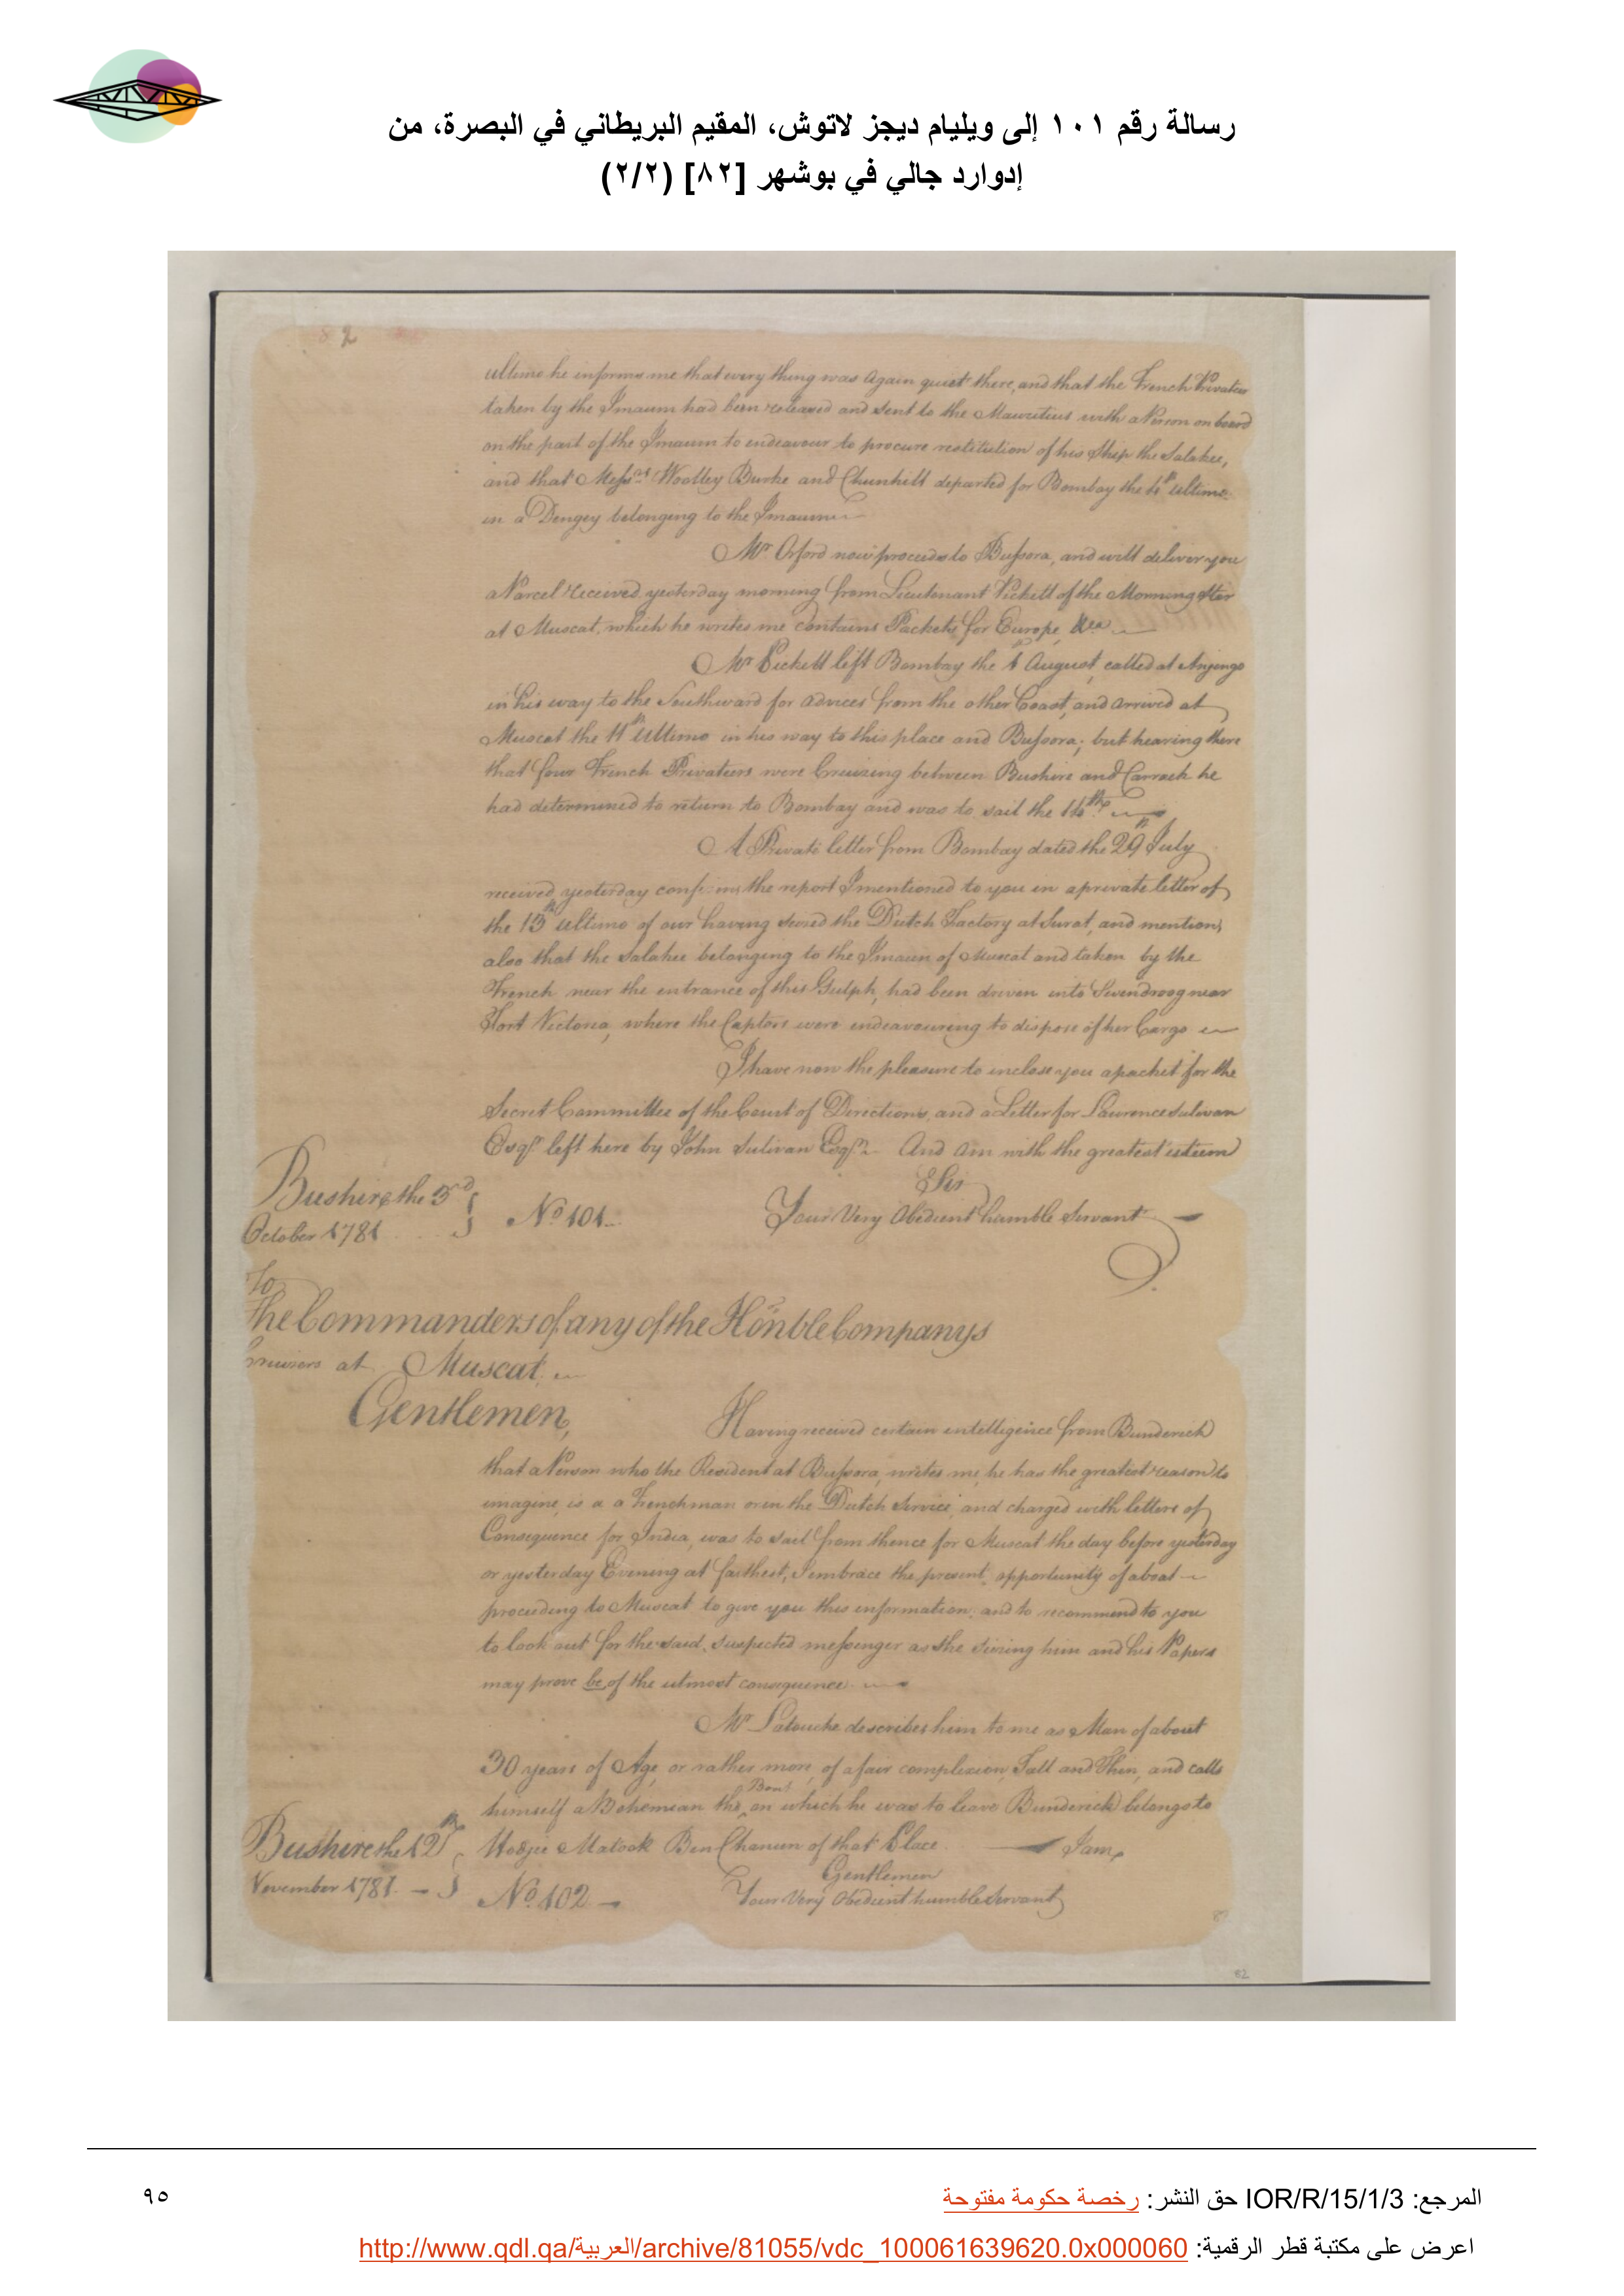 رسالة رقم ١٠١ إلى ويليام ديجز لاتوش، المقيم البريطاني في البصرة، من
إدوارد جالي في بوشهر [٨٢] (٢/٢)
82
ultimo he informs me that every thing was again quiet there, and that the French Privateer
taken by the Imaum had been released and sent to the Mauritius with a Person on board
on the part of the Imaum to endeavour to procure restitution of his Ship the Salahee,
and that Messrs Woolley Burke and Chunhill departed for Bombay the 4th ultimo
in a Dengey belonging to the Imaum
Mr. Orford now proceeds to Bussora, and will deliver you
a Parcel received yesterday morning from Lieutenant Pickett of the Morning Star
at Muscat, which he writes me contains Packets for Europe &ca
Mr Pickett left Bombay the 1 August, called at Anjengo
in his way to the Southward for advices from the other Coast, and arrived at
Muscat the 11th Ultimo in his way to this place and Bussora; but hearing there
that four French Privateers were Cruizing between Bushire and Carrack he
had determined to return to Bombay and was to sail the 14th
A Private letter from Bombay dated the 29th July
received yesterday confirms the report I mentioned to you in a private letter of
the 13th ultimo of our having seized the Dutch Factory at Surat, and mentions
also that the Salahee belonging to the Imaum of Muscat and taken by the
French near the entrance of this Gulph, had been driven into Swendroog near
Fort Victoria, where the Captors were endeavouring to dispose of her Cargo
I have now the pleasure to inclose you a packet for the
Secret Committee of the Court of Directions, and a Letter for Lawrence Sulivan
Esqr. left here by John Sulivan Esqr. And am with the greatest esteem
Sir
Bushire the 3d
October 1781
No. 101
Your Very Obedient humble Servant
To
The Commanders of any of the Honble Companys
Cruizers at Muscat
Gentlemen,
Having received certain intelligence from Bunderick
that a Person who the Resident at Bussora, writes me, he has the greatest reason to
imagine, is a a Frenchman or in the Dutch Service, and charged with letters of
Consequence for India, was to sail from thence for Muscat the day before yesterday
or yesterday Evening at farthest, I embrace the present opportunity of a boat
proceeding to Muscat to give you this information, and to recommend to you
to look out for the said suspected messenger as the seizing him and his Papers
may prove be of the utmost consequence
Mr Latouche describes him to me as a Man of about
30 years of Age, or rather more, of a fair complexion, Tall and Thin, and calls
himself a Bohemian the Boat on which he was to leave Bunderick belongs to
Hodjee Matook Ben Chanum of that Place. I am,
Bushire the 12th
November 1781.
Gentlemen
No. 102
Your Very Obedient humble Servant
82
المرجع: IOR/R/15/1/3 حق النشر: رخصة حكومة مفتوحة
٩٥
اعرض على مكتبة قطر الرقمية: http://www.qdl.qa/العربية/archive/81055/vdc_100061639620.0x000060